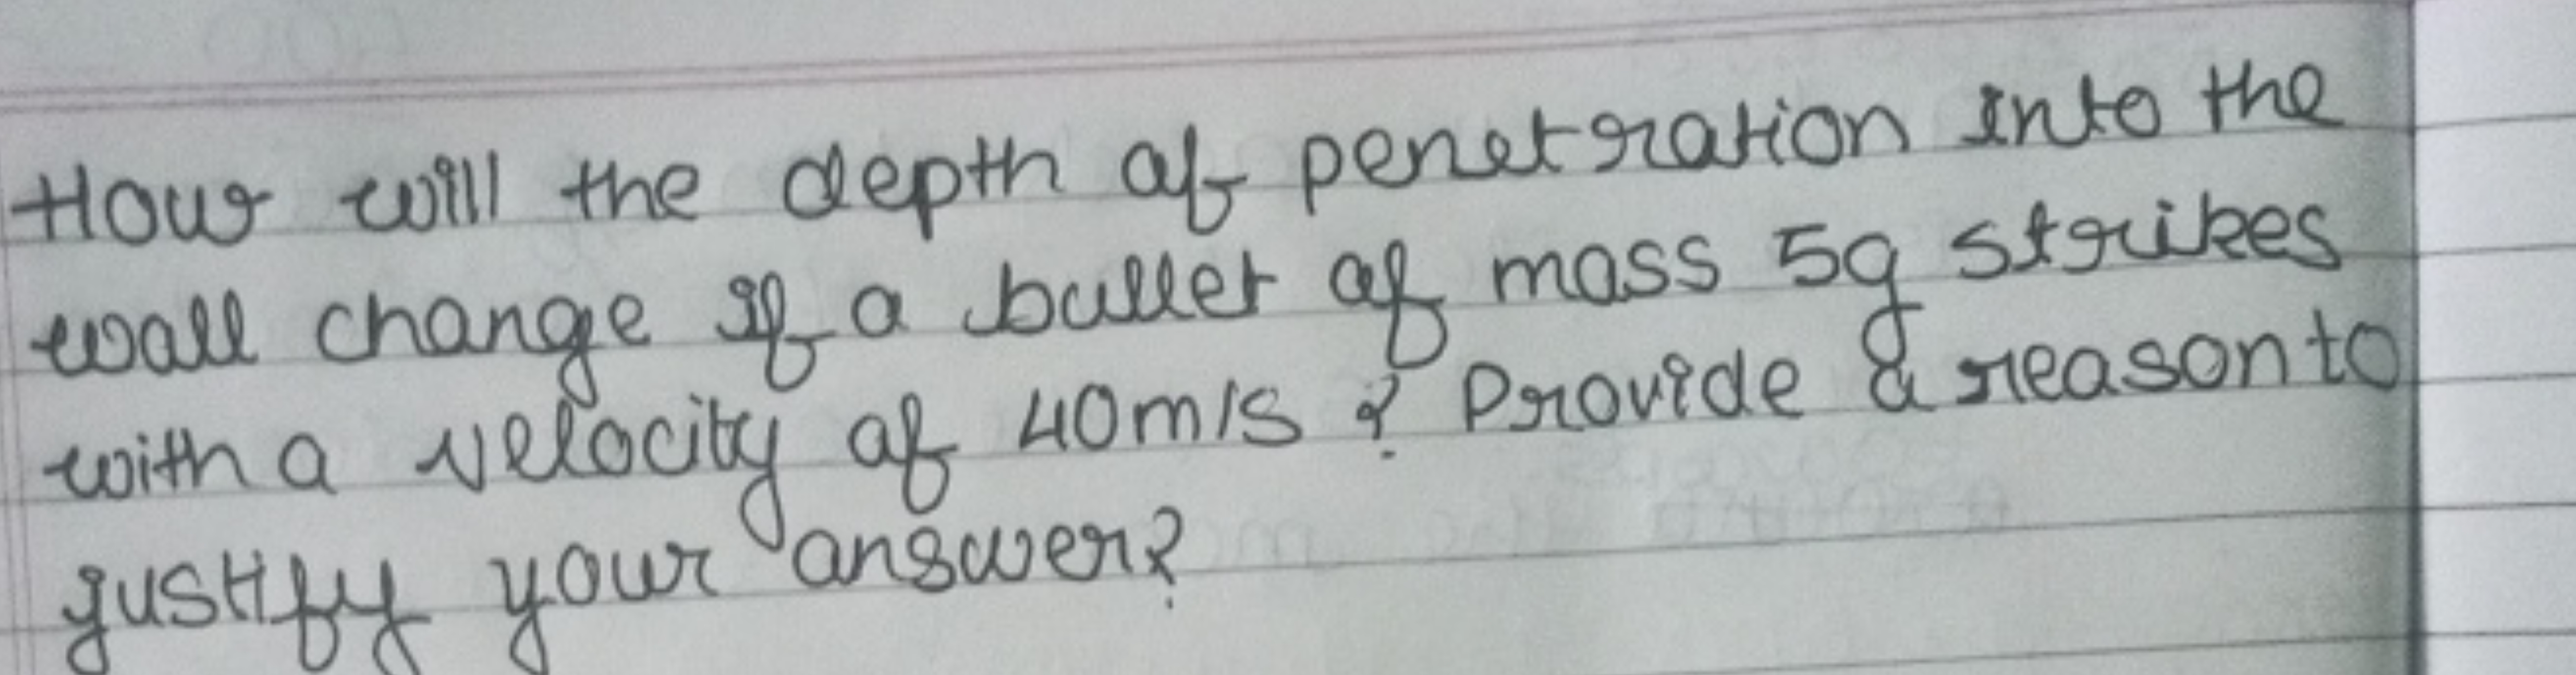 How will the depth of penetration into the
wall change if a bullet of mass 5g strikes
with a velocity of 40m/s ? Provide a reason to
justify your answer?